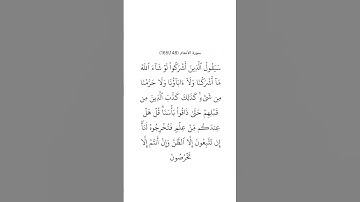 سورة الأنعام (148/165)
سَيَقُولُ ٱلَّذِينَ أَشْرَكُوا۟ لَوْ شَآءَ ٱللَّهُ
مَآ أَشْرَكْنَا وَلَآ ءَابَآؤُنَا وَلَا حَرَّمْنَا
مِن شَىْءٍۢ ۚ كَذَٰلِكَ كَذَّبَ ٱلَّذِينَ مِن
قَبْلِهِمْ حَتَّىٰ ذَاقُوا۟ بَأْسَنَا ۗ قُلْ هَلْ
عِندَكُم مِّنْ عِلْمٍۢ فَتُخْرِجُوهُ لَنَآ ۖ
إِن تَتَّبِعُونَ إِلَّا ٱلظَّنَّ وَإِنْ أَنتُمْ إِلَّا
تَخْرُصُونَ